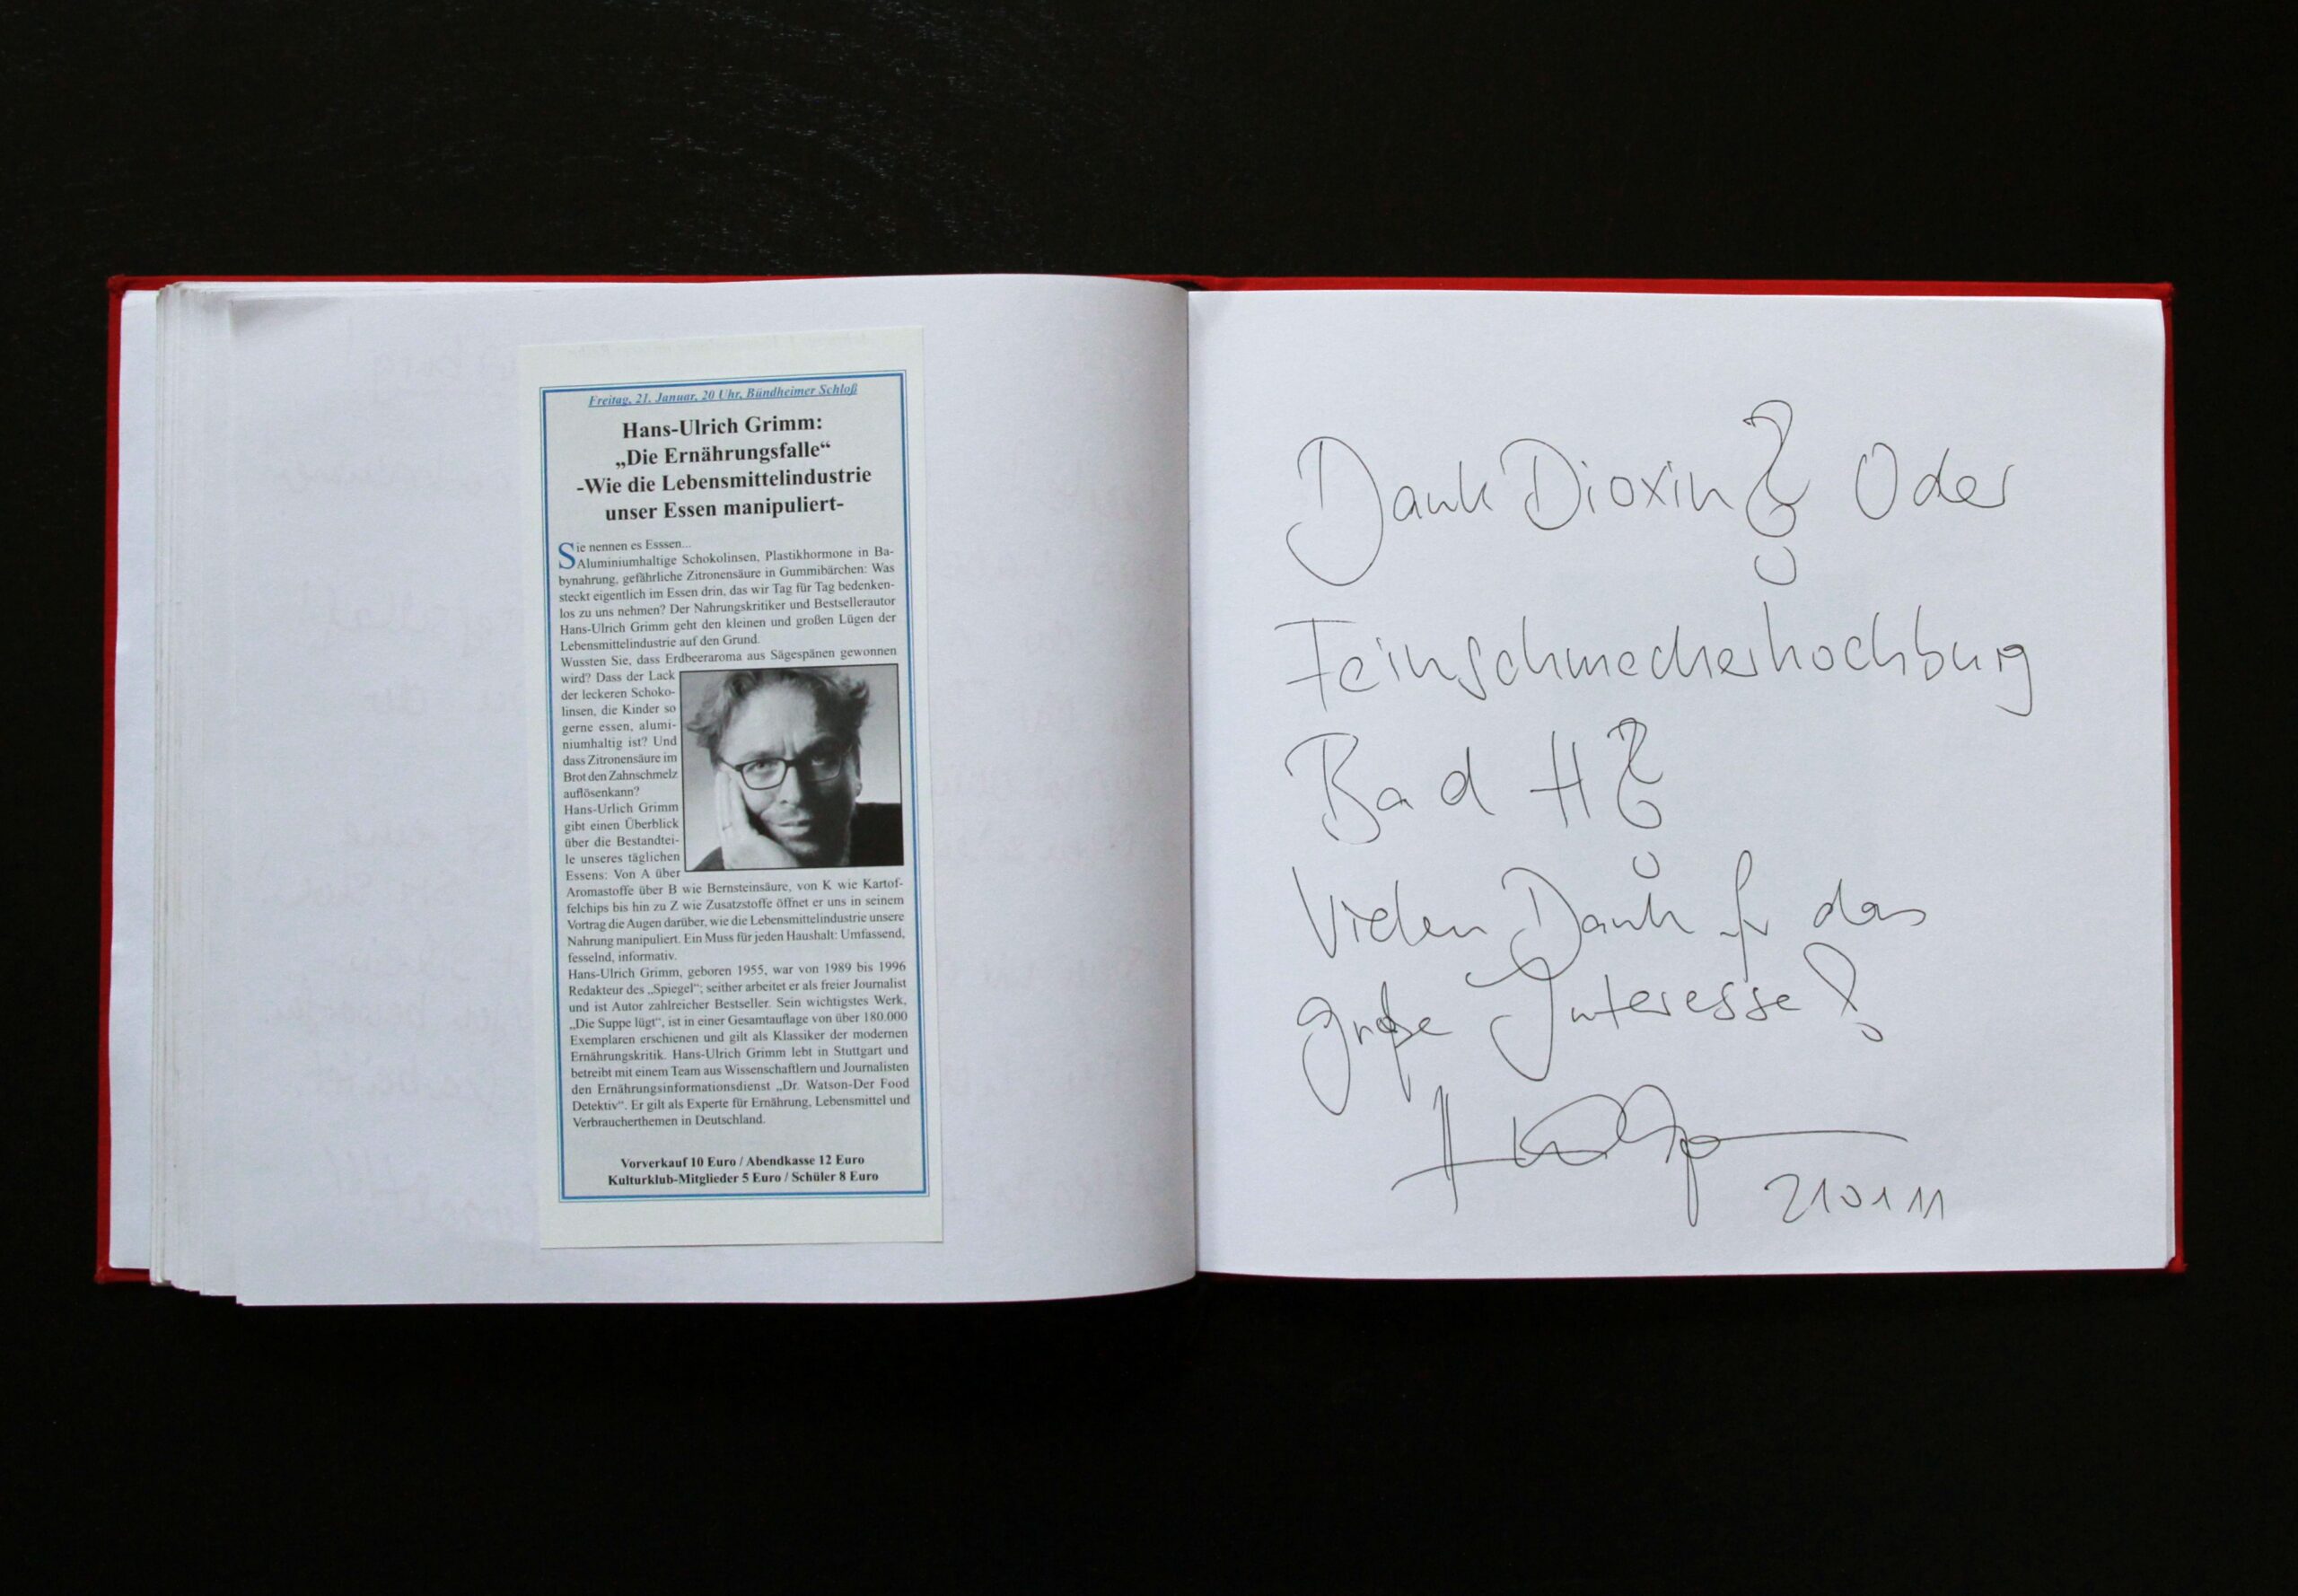 Freitag, 21. Januar, 20 Uhr, Bündheimer Schloß
Hans-Ulrich Grimm:
„Die Ernährungsfalle“
-Wie die Lebensmittelindustrie
unser Essen manipuliert-
Sie nennen es Esssen...
Aluminiumhaltige Schokolinsen, Plastikhormone in Ba-
bynahrung, gefährliche Zitronensäure in Gummibärchen: Was
steckt eigentlich im Essen drin, das wir Tag für Tag bedenken-
los zu uns nehmen? Der Nahrungskritiker und Bestsellerautor
Hans-Ulrich Grimm geht den kleinen und großen Lügen der
Lebensmittelindustrie auf den Grund.
Wussten Sie, dass Erdbeeraroma aus Sägespänen gewonnen
wird? Dass der Lack
der leckeren Schoko-
linsen, die Kinder so
gerne essen, alumi-
niumhaltig ist? Und
dass Zitronensäure im
Brot den Zahnschmelz
auflösenkann?
Hans-Urlich Grimm
gibt einen Überblick
über die Bestandtei-
le unseres täglichen
Essens: Von A über
Aromastoffe über B wie Bernsteinsäure, von K wie Kartof-
felchips bis hin zu Z wie Zusatzstoffe öffnet er uns in seinem
Vortrag die Augen darüber, wie die Lebensmittelindustrie unsere
Nahrung manipuliert. Ein Muss für jeden Haushalt: Umfassend,
fesselnd, informativ.
Hans-Ulrich Grimm, geboren 1955, war von 1989 bis 1996
Redakteur des „Spiegel“; seither arbeitet er als freier Journalist
und ist Autor zahlreicher Bestseller. Sein wichtigstes Werk,
„Die Suppe lügt“, ist in einer Gesamtauflage von über 180.000
Exemplaren erschienen und gilt als Klassiker der modernen
Ernährungskritik. Hans-Ulrich Grimm lebt in Stuttgart und
betreibt mit einem Team aus Wissenschaftlern und Journalisten
den Ernährungsinformationsdienst „Dr. Watson-Der Food
Detektiv“. Er gilt als Experte für Ernährung, Lebensmittel und
Verbraucherthemen in Deutschland.
Vorverkauf 10 Euro / Abendkasse 12 Euro
Kulturklub-Mitglieder 5 Euro / Schüler 8 Euro
Dank Dioxin? Oder
Feinschmeckerhochburg
Bad H?
Vielen Dank für das
große Interesse!
210111